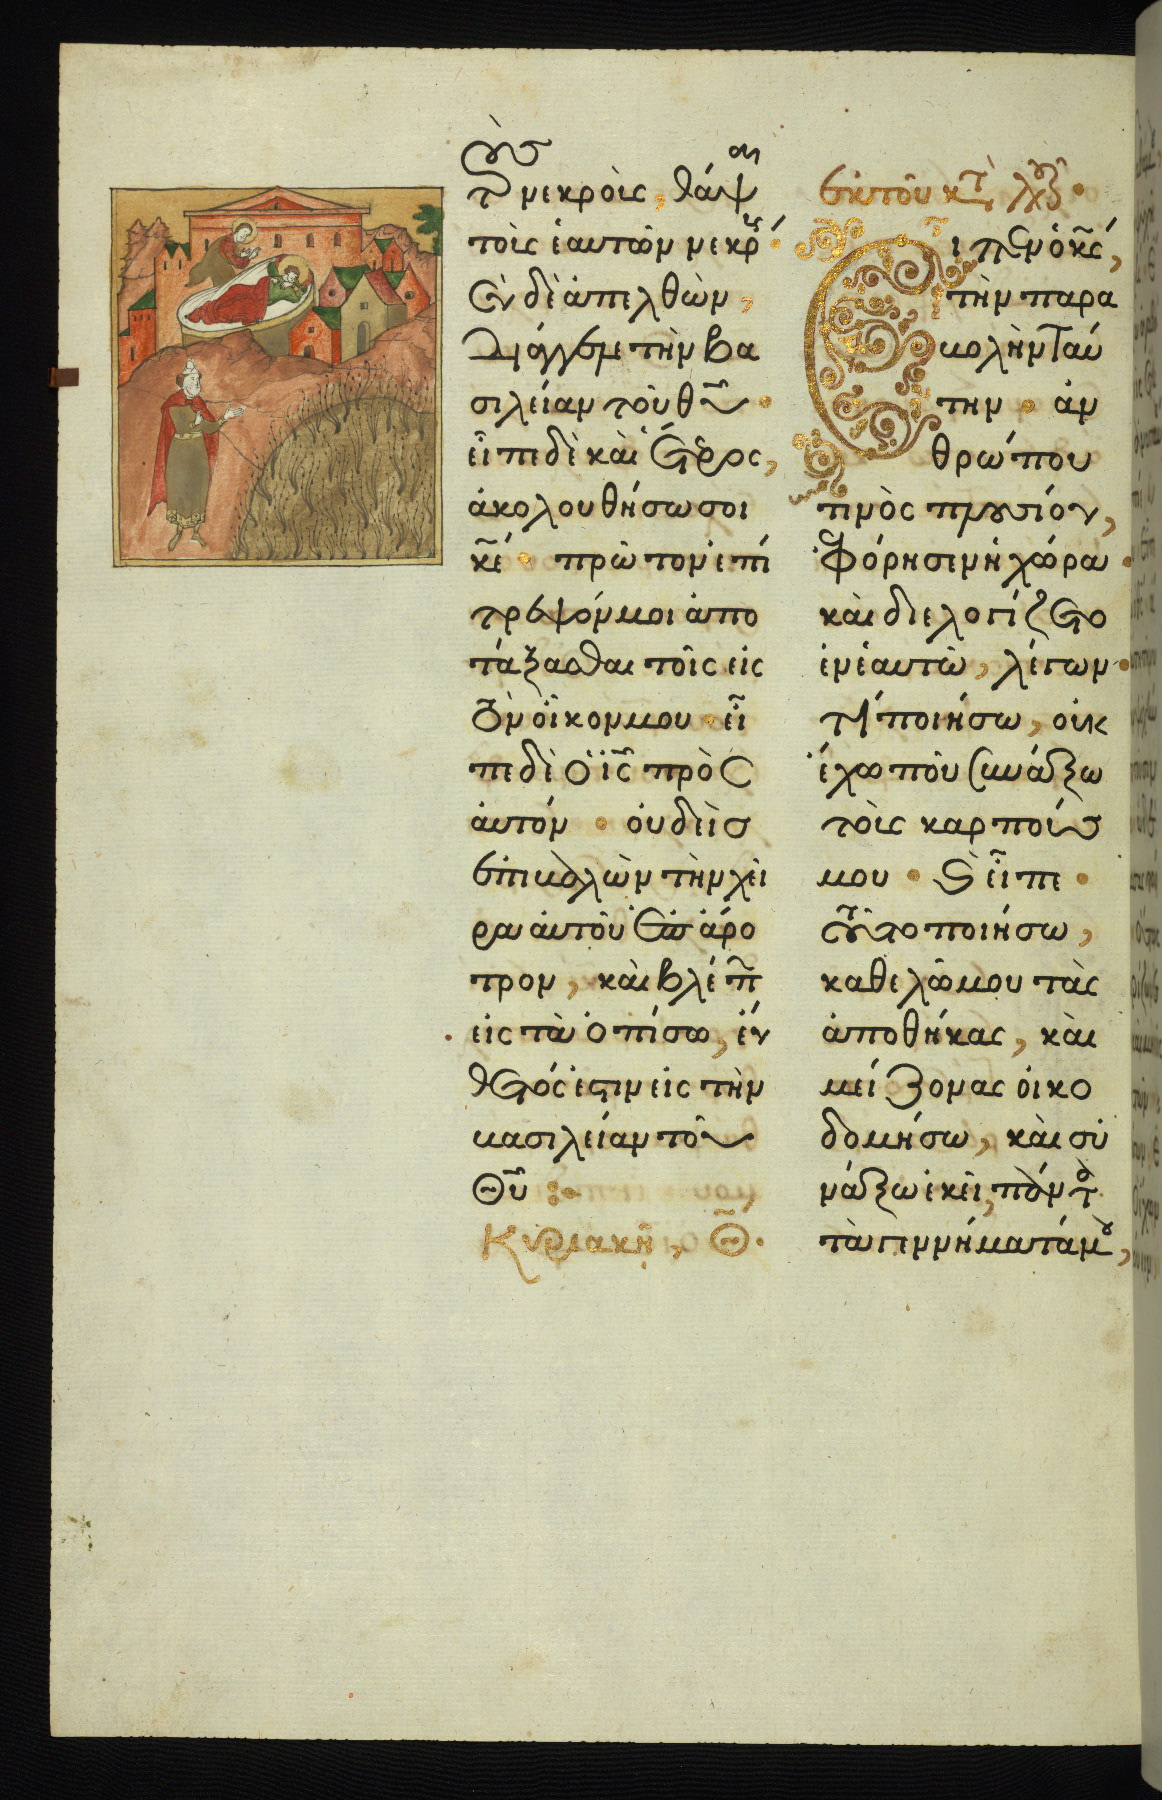 τοὺς
νεκροὺς, θάψαι
τοὺς ἑαυτῶν νεκρούς·
σὺ δὲ ἀπελθὼν,
διάγγελε τὴν βα
σιλείαν τοῦ θῦ·
εἶπε δὲ καὶ ἕτερος,
ἀκολουθήσω σοι
κ̅ε̅· πρῶτον ἐπί
τρεψόν μοι ἀπο
τάξασθαι τοῖς εἰς
τὸν οἶκον μου· εἶ
πε δὲ ὁ ι̅ς̅ πρὸς
αὐτόν· οὐδεὶς
ἐπιβαλὼν τὴν χεῖ
ρα αὐτοῦ ἐπ' ἄρο
τρον, καὶ βλέπων
εἰς τὰ ὀπίσω, εὔ
θετός ἐστιν εἰς τὴν
βασιλείαν τοῦ
θ̅υ̅ :·
Κυριακῇ, θ̅·
ἐκ τοῦ κατὰ λουκᾶν·
Εἶπεν ὁ κ̅ς̅,
τὴν παρα
βολὴν ταύ
την· ἀν
θρώπου
τινὸς πλουσίου,
εὐφόρησεν ἡ χώρα·
καὶ διελογίζετο
ἐν ἑαυτῶ, λέγων·
τί ποιήσω, οὐκ
ἔχω ποῦ συνάξω
τοὺς καρπούς
μου· καὶ εἶπε·
τοῦτο ποιήσω,
καθελῶ μου τὰς
ἀποθήκας, καὶ
μείζονας οἰκο
δομήσω, καὶ συ
νάξω ἐκεῖ, πάντα
τὰ γεννήματά μου,